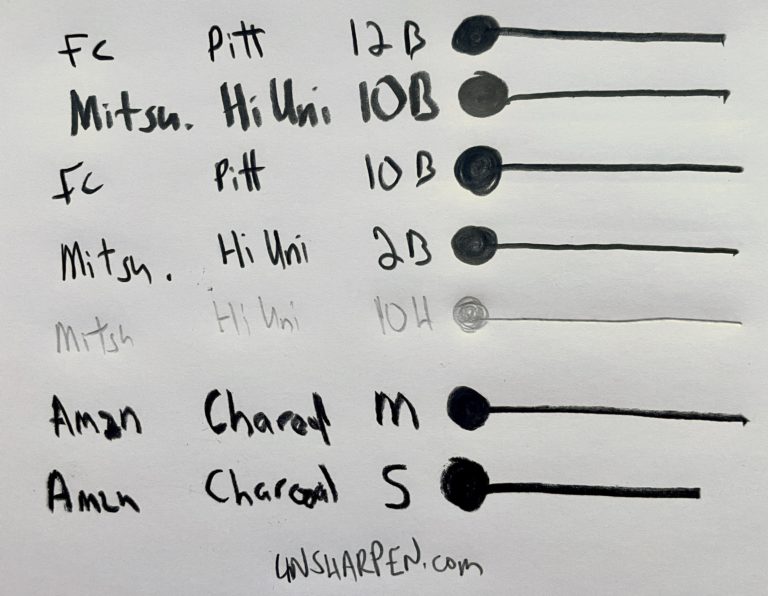 FC Pitt 12B
Mitsu. Hi Uni 10B
FC Pitt 10B
Mitsu. Hi Uni 2B
Mitsu Hi Uni 10H
Amzn Charcoal M
Amzn Charcoal S
UNSHARPEN.com